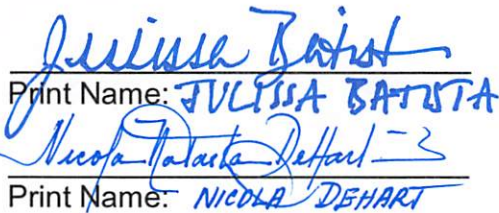 Julissa Batista
Print Name: JULISSA BATISTA
Nicola Natasha DeHart
Print Name: NICOLA DEHART